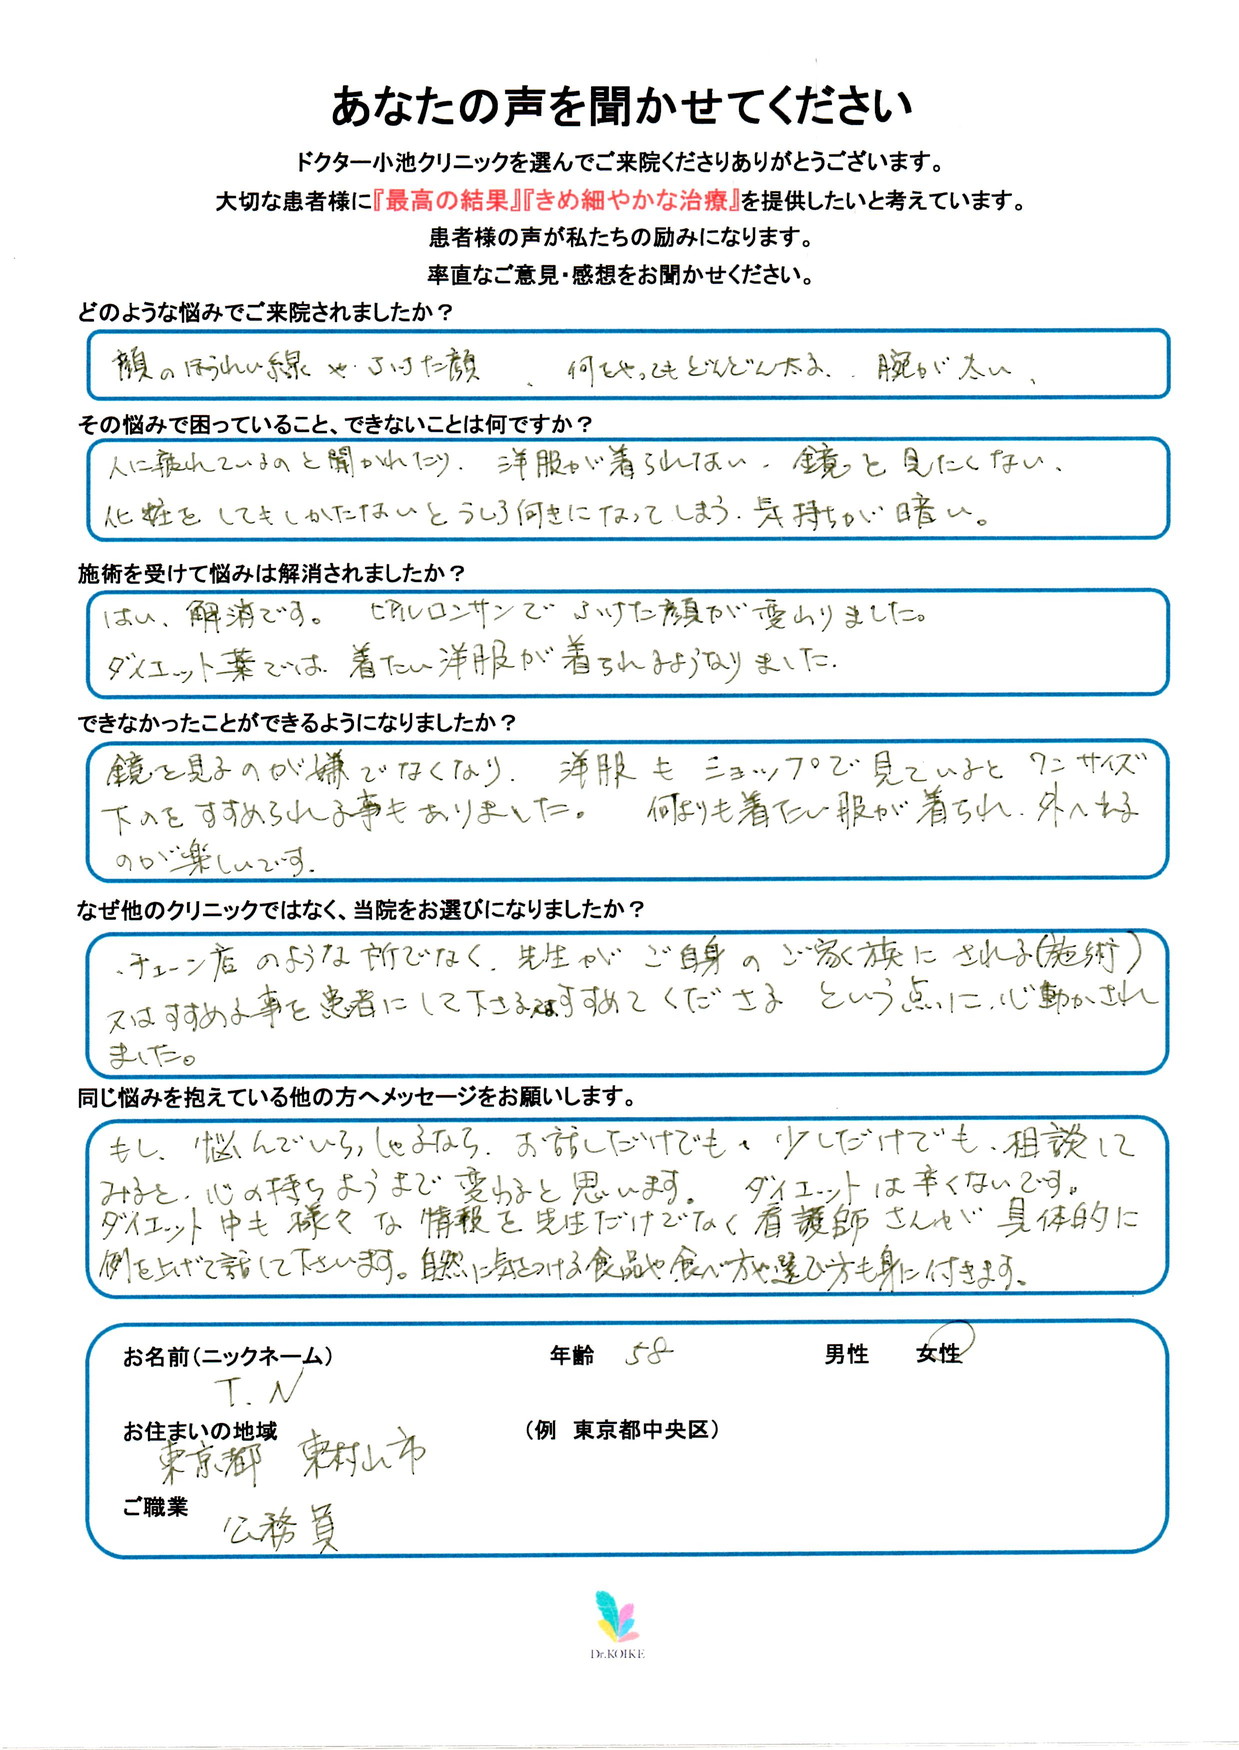 あなたの声を聞かせてください
ドクター小池クリニックを選んでご来院くださりありがとうございます。
大切な患者様に『最高の結果』『きめ細やかな治療』を提供したいと考えています。
患者様の声が私たちの励みになります。
率直なご意見・感想をお聞かせください。
どのような悩みでご来院されましたか？
顔のほうれい線や ふけた顔、何をやってもどんどん太る、腕が太い、
その悩みで困っていること、できないことは何ですか？
人に疲れているのと聞かれたり、洋服が着られない、鏡を見たくない、
化粧をしてもしかたないとうしろ向きになってしまう、気持ちが暗い。
施術を受けて悩みは解消されましたか？
はい、解消です。ヒアルロンサンでふけた顔が変わりました。
ダイエット薬では、着たい洋服が着られるようなりました。
できなかったことができるようになりましたか？
鏡を見るのが嫌でなくなり、洋服もショップで見ていると ワンサイズ
下のをすすめられる事もありました。何よりも着たい服が着られ、外へ出る
のが楽しいです。
なぜ他のクリニックではなく、当院をお選びになりましたか？
、チェーン店のような所でなく、先生がご自身のご家族にされる(施術)
又はすすめる事を患者にして下さる又はすすめてくださる という点に、心動かされ
ました。
同じ悩みを抱えている他の方へメッセージをお願いします。
もし、悩んでいらっしゃるなら、お話しだけでも、少しだけでも、相談して
みると、心の持ちようまで変わると思います。ダイエットは辛くないです。
ダイエット中も様々な情報を先生だけでなく看護師さんが具体的に
例を上げて話して下さいます。自然に気をつける食品や食べ方や選び方も身に付きます。
お名前(ニックネーム) 年齢 58 男性 女性
T.N
お住まいの地域 (例 東京都中央区)
東京都 東村山市
ご職業
公務員
Dr.KOIKE